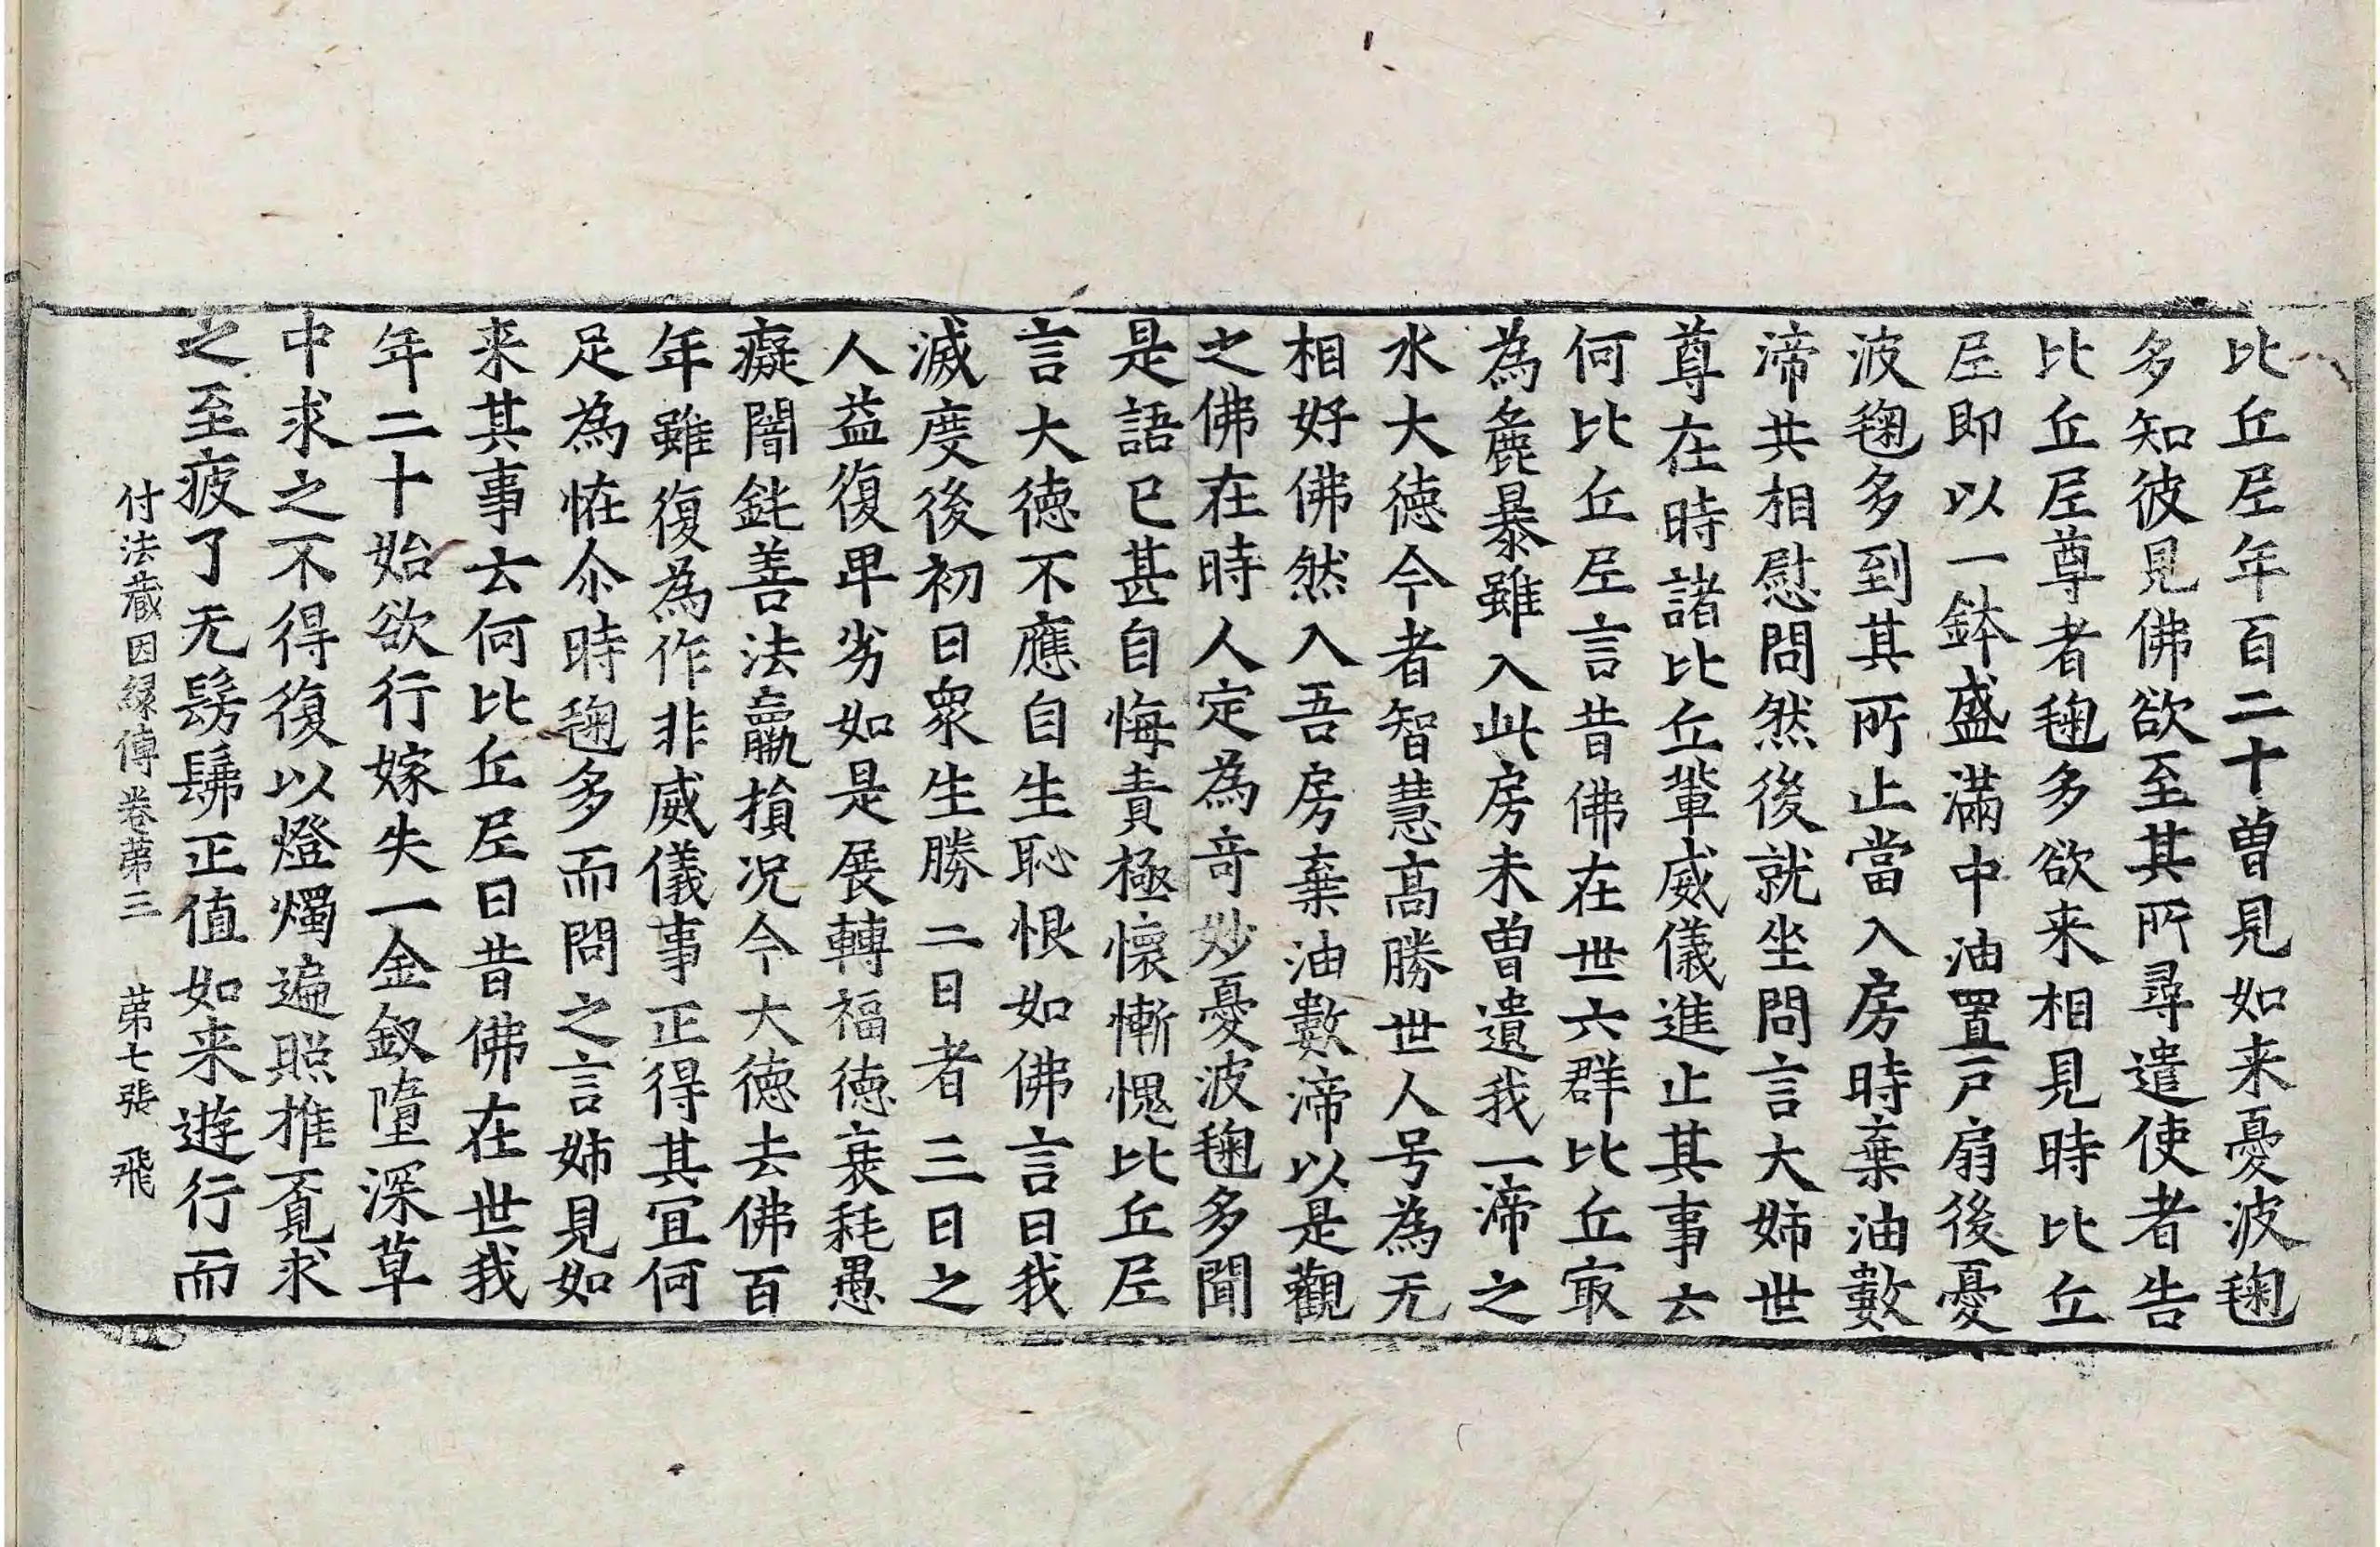 比丘尼年百二十曽見如来憂波毱
多知彼見佛欲至其所尋遣使者告
比丘尼尊者毱多欲来相見時比丘
尼即以一鉢盛滿中油置戸扇後憂
波毱多到其所止當入房時棄油數
渧共相慰問然後就坐問言大姉世
尊在時諸比丘輩威儀進止其事云
何比丘尼言昔佛在世六群比丘㝡
為麁暴雖入此房未曽遺我一渧之
水大徳今者智慧髙勝世人号為无
相好佛然入吾房棄油數渧以是觀
之佛在時人定為竒妙憂波毱多聞
是語已甚自悔責極懷慚愧比丘尼
言大徳不應自生恥恨如佛言曰我
滅度後初日衆生勝二日者三日之
人益復卑劣如是展轉福徳衰耗愚
癡闇鈍善法羸損况今大徳去佛百
年雖復為作非威儀事正得其冝何
足為恠尒時毱多而問之言姉見如
来其事云何比丘尼曰昔佛在世我
年二十始欲行嫁失一金釵墮深草
中求之不得復以燈燭遍照推覔求
之至疲了无髣髴正值如来遊行而
付法蔵因緣傳卷苐三　苐七張　飛